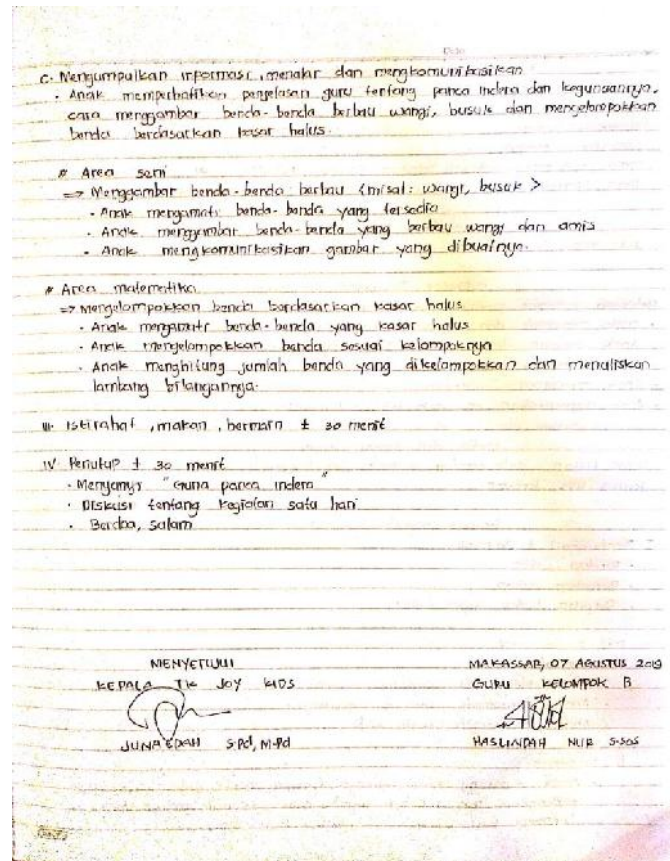 C. Mengumpulkan informasi, menalar dan mengkomunikasikan
· Anak memperhatikan penjelasan guru tentang panca indera dan kegunaannya,
cara menggambar benda-benda berbau wangi, busuk dan mengelompokkan
benda berdasarkan kasar halus.
# Area seni
=> Menggambar benda-benda berbau (misal: wangi, busuk >
· Anak mengamati benda-benda yang tersedia
· Anak menggambar benda-benda yang berbau wangi dan amis
· Anak mengkomunikasikan gambar yang dibuatnya.
# Area matematika
=> Mengelompokkan benda berdasarkan kasar halus
· Anak mengamati benda-benda yang kasar halus
· Anak mengelompokkan benda sesuai kelompoknya
· Anak menghitung jumlah benda yang dikelompokkan dan menuliskan
lambang bilangannya.
III. Istirahat, makan, bermain ± 30 menit
IV Penutup ± 30 menit
· Menyanyi "Guna panca indera"
· Diskusi tentang kegiatan satu hari
· Berdoa, salam
MENYETUJUI
KEPALA TK JOY KIDS
JUNAEDAH S.Pd, M.Pd
MAKASSAR, 07 AGUSTUS 2019
GURU KELOMPOK B
HASLINDAH NUR S.SOS